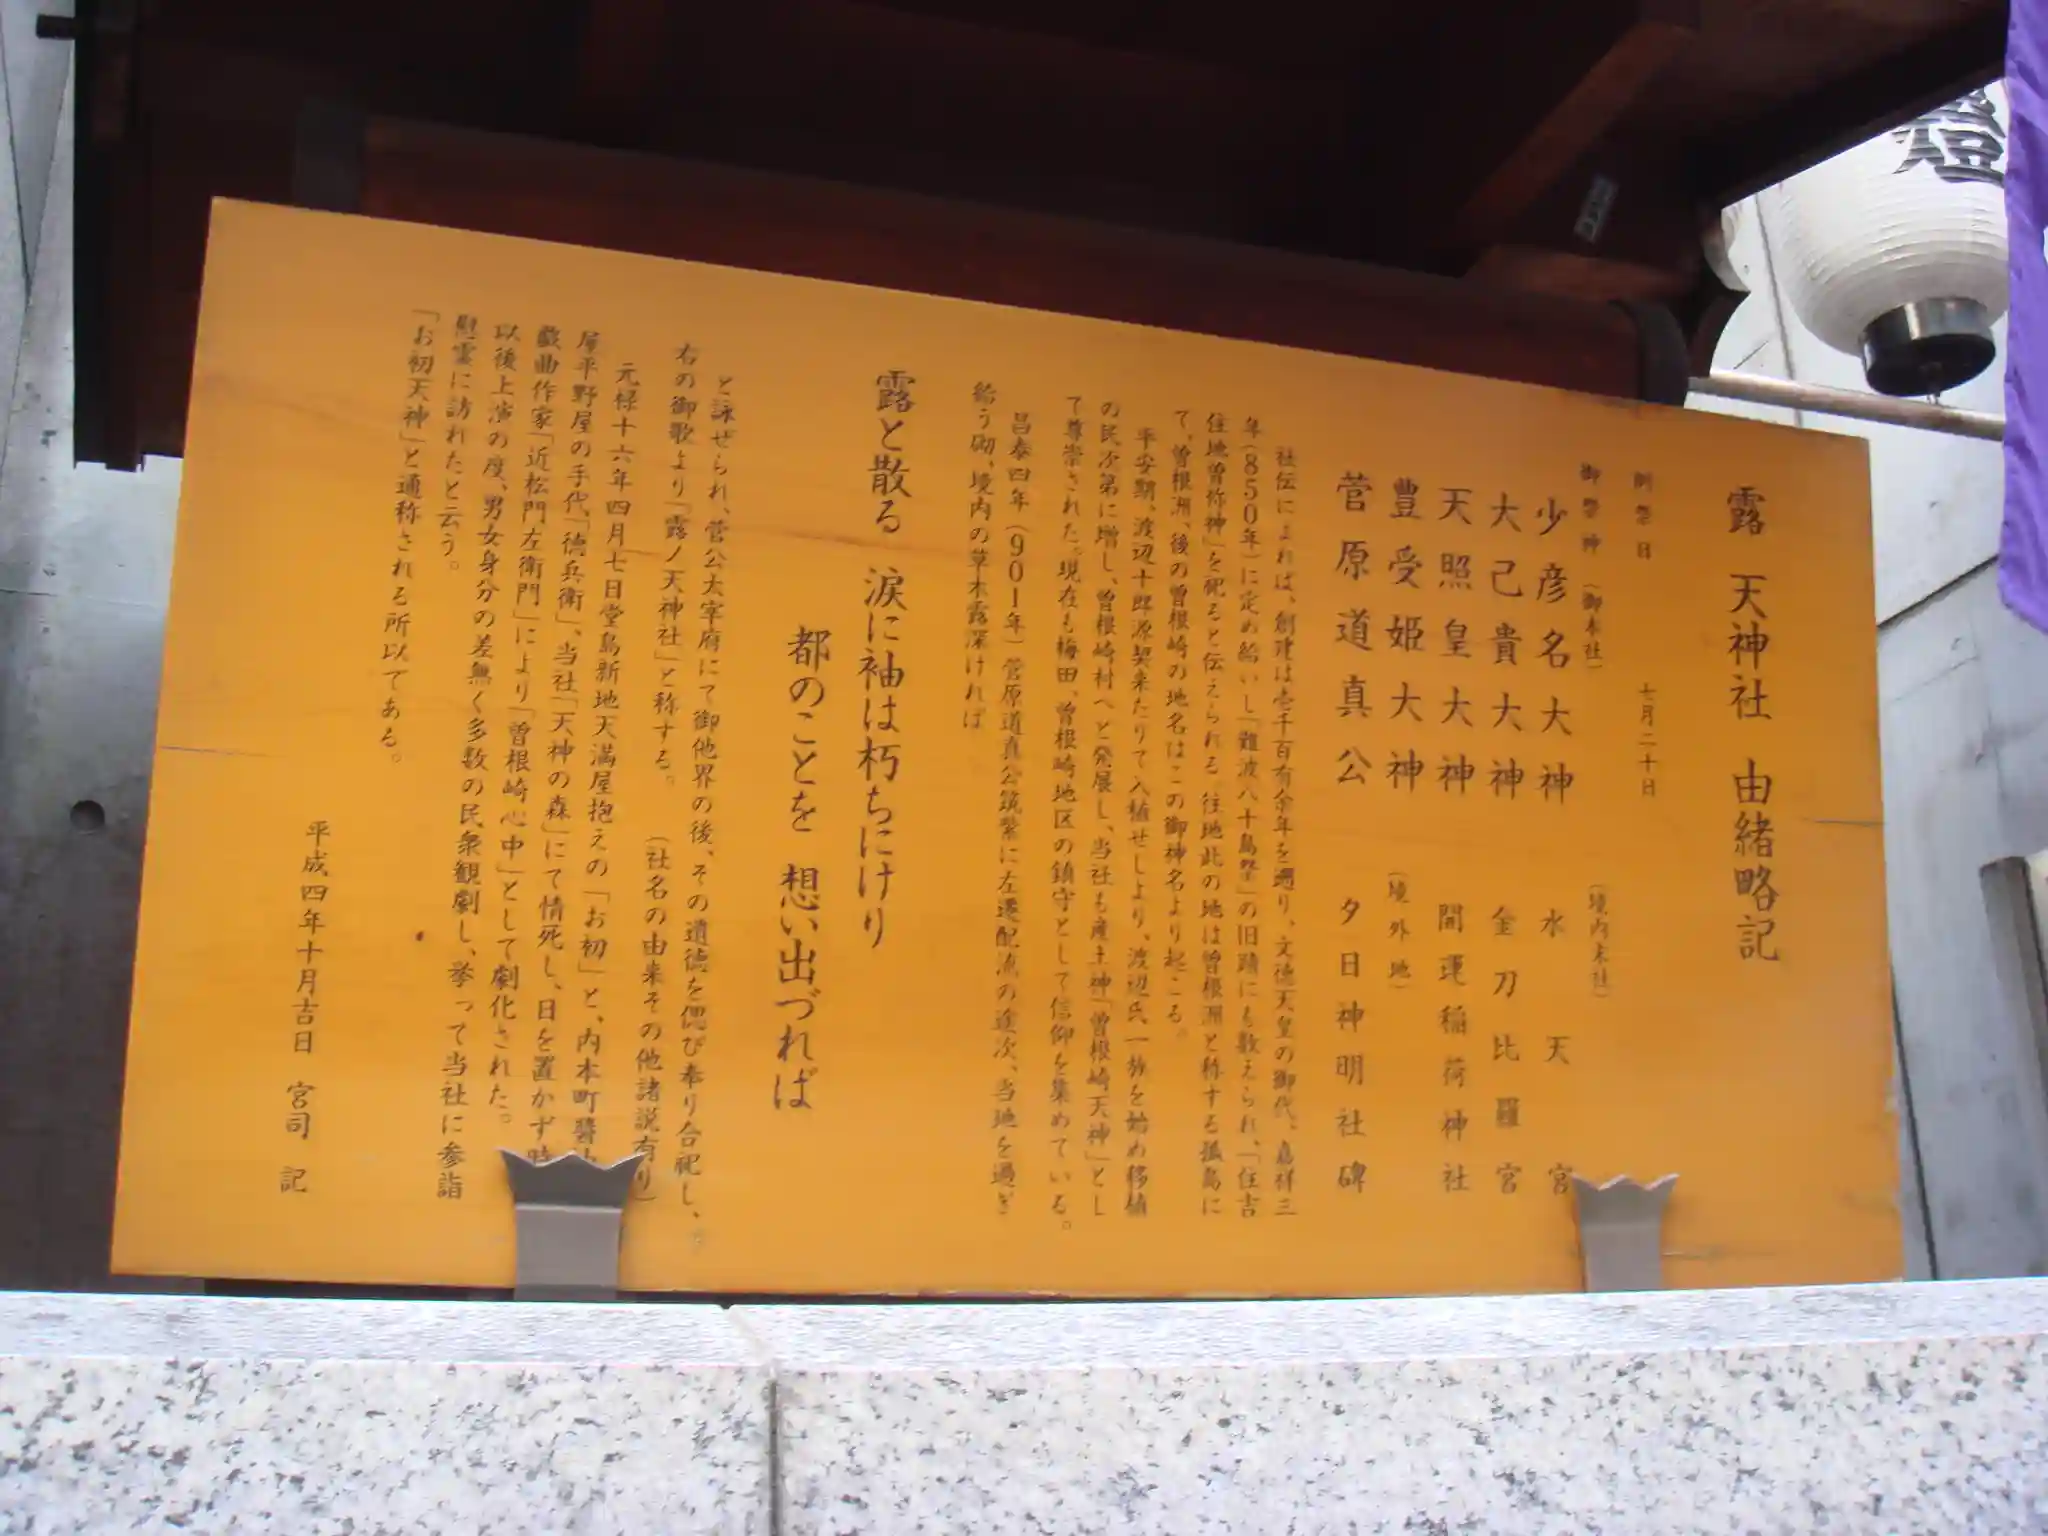 露 天神社 由緒略記
例祭日 七月二十日
御祭神（御本社）（境内末社）
少彦名大神 水天宮
大己貴大神 金刀比羅宮
天照皇大神 開運稲荷神社
豊受姫大神（境外地）
菅原道真公 夕日神明社碑
社伝によれば、創建は壱千百有余年を遡り、文徳天皇の御代、嘉祥三
年（850年）に定め給いし「難波八十島祭」の旧蹟にも数えられ、「住吉
住地曽祢神」を祀ると伝えられる。往地此の地は曽根洲と称する孤島に
て、曽根洲、後の曽根崎の地名はこの御神名より起こる。
平安期、渡辺十郎源契来たりて入植せしより、渡辺氏一族を始め移植
の民次第に増し、曽根崎村へと発展し、当社も産土神「曽根崎天神」とし
て尊崇された。現在も梅田、曽根崎地区の鎮守として信仰を集めている。
昌泰四年（901年）菅原道真公筑紫に左遷配流の途次、当地を過ぎ
給う砌、境内の草木露深ければ
露と散る 涙に袖は朽ちにけり
都のことを 想い出づれば
と詠ぜられ、菅公太宰府にて御他界の後、その遺徳を偲び奉り合祀し、
右の御歌より「露ノ天神社」と称する。（社名の由来その他諸説有り）
元禄十六年四月七日堂島新地天満屋抱えの「お初」と、内本町醬
屋平野屋の手代、「徳兵衛」、当社「天神の森」にて情死し、日を置かず時
戯曲作家「近松門左衛門」により「曽根崎心中」として劇化された。
以後上演の度、男女身分の差無く多数の民衆観劇し、挙って当社に参詣
慰霊に訪れたと云う。
「お初天神」と通称される所以である。
平成四年十月吉日 宮司 記
燈